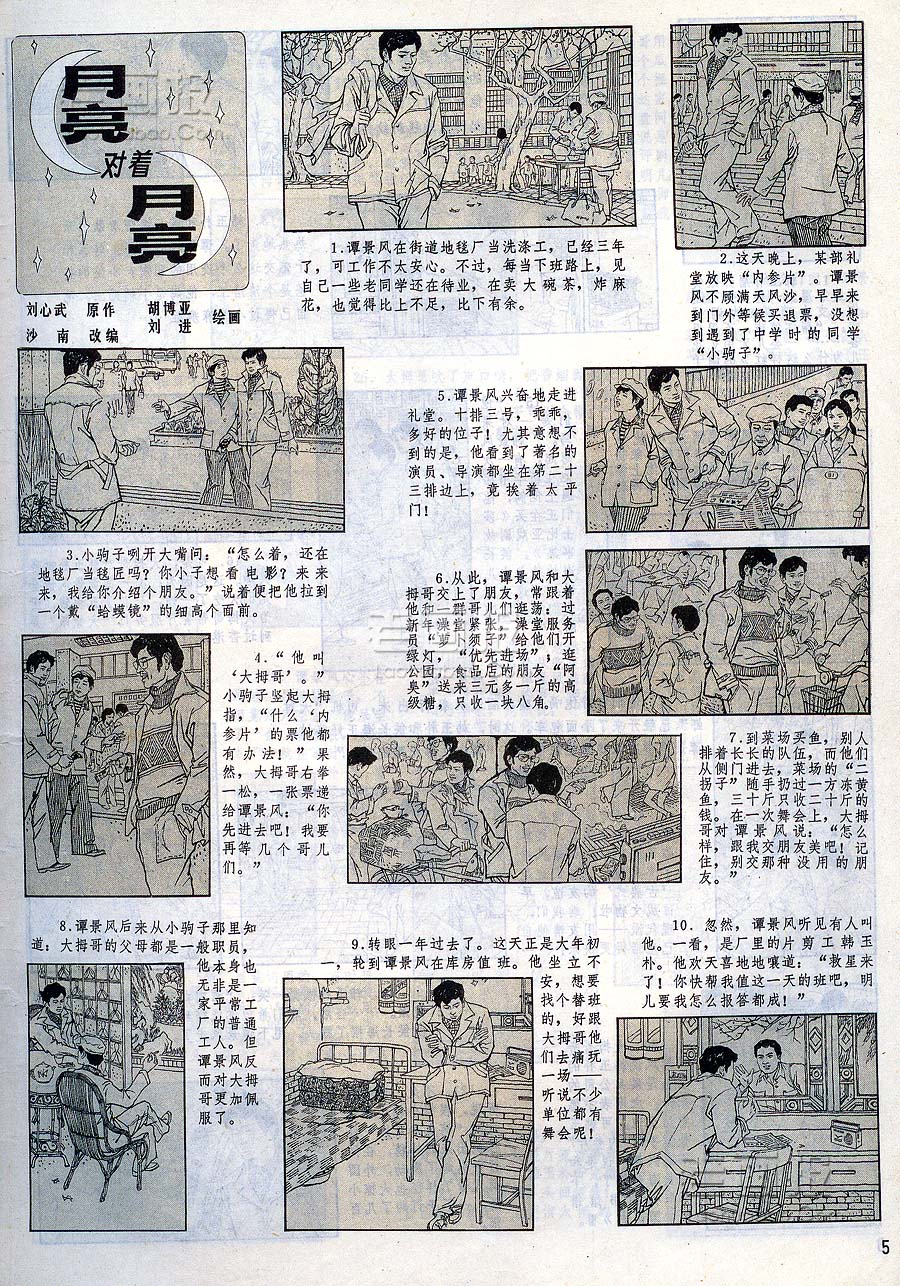 月亮
对着
月亮
刘心武 原作 胡博亚
刘 进 绘画
沙 南 改编
1.谭景风在街道地毯厂当洗涤工，已经三年
了，可工作不太安心。不过，每当下班路上，见
自己一些老同学还在待业，在卖大碗茶，炸麻
花，也觉得比上不足，比下有余。
2.这天晚上，某部礼
堂放映“内参片”。谭景
风不顾满天风沙，早早来
到门外等侯买退票，没想
到遇到了中学时的同学
“小驹子”。
3.小驹子咧开大嘴问：“怎么着，还在
地毯厂当毯匠吗？你小子想看电影？来来
来，我给你介绍个朋友。”说着便把他拉到
一个戴“蛤蟆镜”的细高个面前。
4.“他叫
‘大拇哥’。”
小驹子竖起大拇
指，“什么‘内
参片’的票他都
有办法！”果
然，大拇哥右拳
一松，一张票递
给谭景风：“你
先进去吧！我要
再等几个哥儿
们。”
5.谭景风兴奋地走进
礼堂。十排三号，乖乖，
多好的位子！尤其意想不
到的是，他看到了著名的
演员、导演都坐在第二十
三排边上，竟挨着太平
门！
6.从此，谭景风和大
拇哥交上了朋友，常跟着
他和一群哥儿们逛荡：过
新年澡堂紧张，澡堂服务
员“萝卜须子”给他们开
绿灯，“优先进场”，逛
公园，食品店的朋友“阿
奥”送来三元多一斤的高
级糖，只收一块八角。
7.到菜场买鱼，别人
排着长长的队伍，而他们
从侧门进去，菜场的“二
拐子”随手扔过一方冻黄
鱼，三十斤只收二十斤的
钱。在一次舞会上，大拇
哥对谭景风说：“怎么
样，跟我交朋友美吧！记
住，别交那种没用的朋
友。”
8.谭景风后来从小驹子那里知
道：大拇哥的父母都是一般职员，
他本身也
无非是一
家平常工
厂的普通
工人。但
谭景风反
而对大拇
哥更加佩
服了。
9.转眼一年过去了。这天正是大年初
一，轮到谭景风在库房值班。他坐立不
安，想要
找个替班
的，好跟
大拇哥他
们去痛玩
一场——
听说不少
单位都有
舞会呢！
10.忽然，谭景风听见有人叫
他。一看，是厂里的片剪工韩玉
朴。他欢天喜地地嚷道：“救星来
了！你快帮我值这一天的班吧，明
儿要我怎么报答都成！”
5